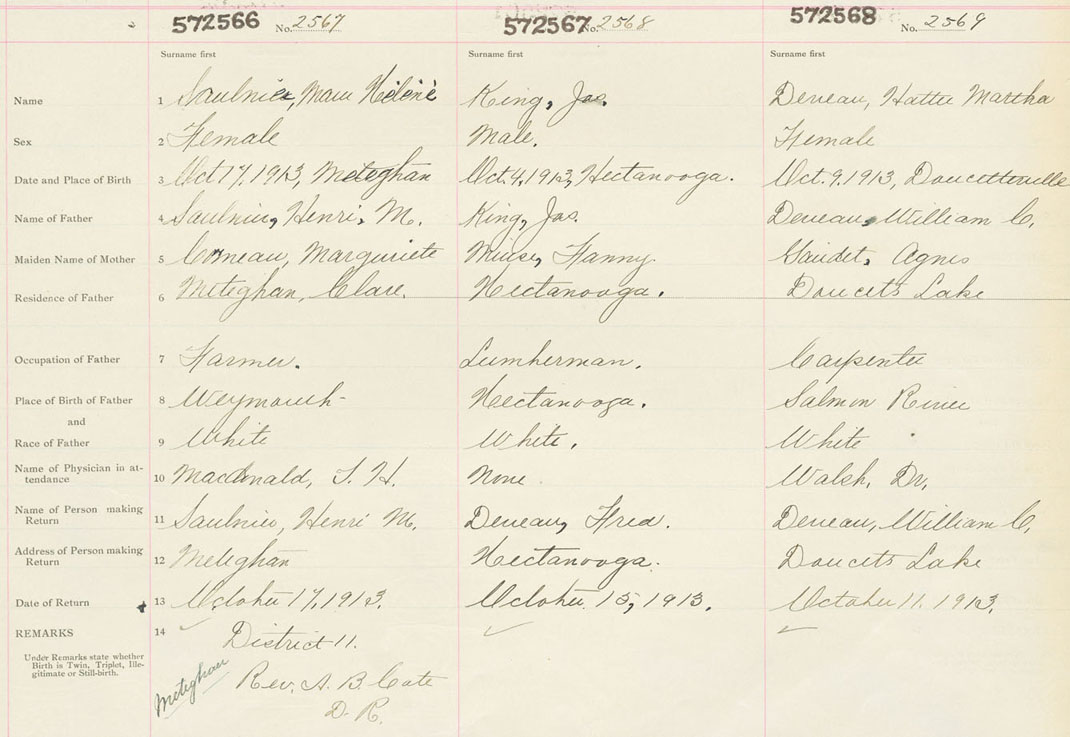 572566 No. 2567 572567 No. 2568 572568 No. 2569
Surname first Surname first Surname first
Name 1 Saulnier, Marie Hélène King, Jas. Deveau, Hattie Martha
Sex 2 Female Male. Female
Date and Place of Birth 3 Oct 17, 1913, Meteghan Oct. 4, 1913, Hectanooga. Oct. 9, 1913, Doucetteville
Name of Father 4 Saulnier, Henri, M. King, Jas. Deveau, William C.
Maiden Name of Mother 5 Comeau, Marguriete Muise, Fanny. Gaudet, Agnes
Residence of Father 6 Meteghan, Clare. Hectanooga. Doucets Lake
Occupation of Father 7 Farmer. Lumberman. Carpenter
Place of Birth of Father 8 Weymouth Hectanooga. Salmon River
and
Race of Father 9 White White. White
Name of Physician in at-
tendance 10 MacDonald, T. H. None Walsh, Dr.
Name of Person making
Return 11 Saulnier, Henri M. Deveau, Fred. Deveau, William C.
Address of Person making
Return 12 Meteghan Hectanooga. Doucets Lake
Date of Return 13 October 17, 1913. October. 15, 1913. October 11. 1913.
REMARKS 14 District 11.
Under Remarks state whether
Birth is Twin, Triplet, Ille-
gitimate or Still-birth.
Meteghan Rev. A. B. Cote
D. R.